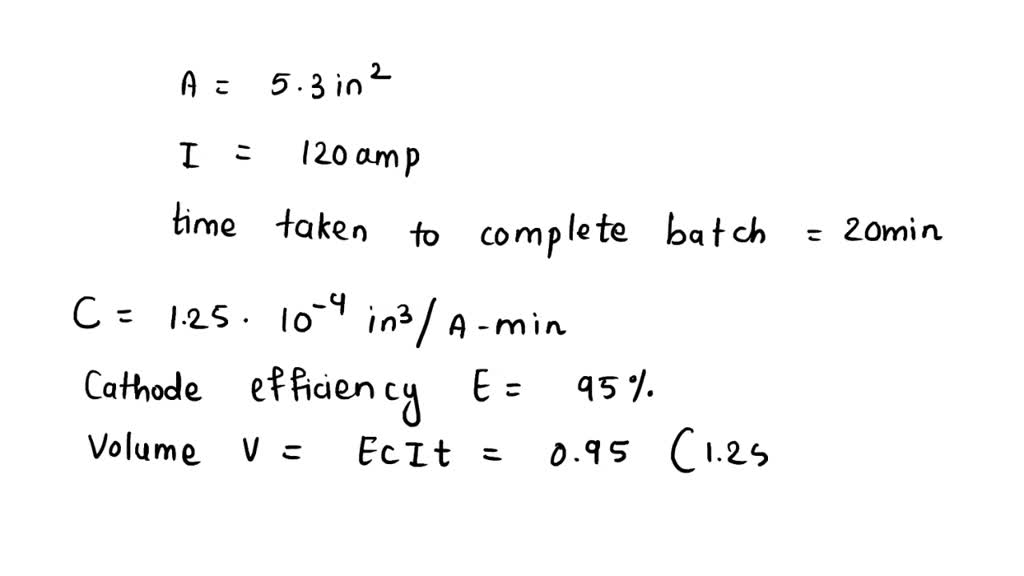 A = 5.3 in²
I = 120 amp
time taken to complete batch = 20min
C = 1.25 · 10⁻⁴ in³/A-min
Cathode efficiency E = 95%.
Volume V = EcIt = 0.95 (1.25